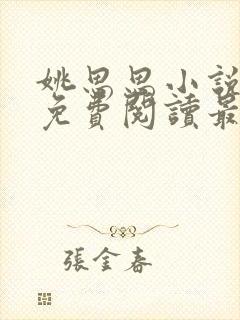 姚思思小說
免費閱讀最
張金春